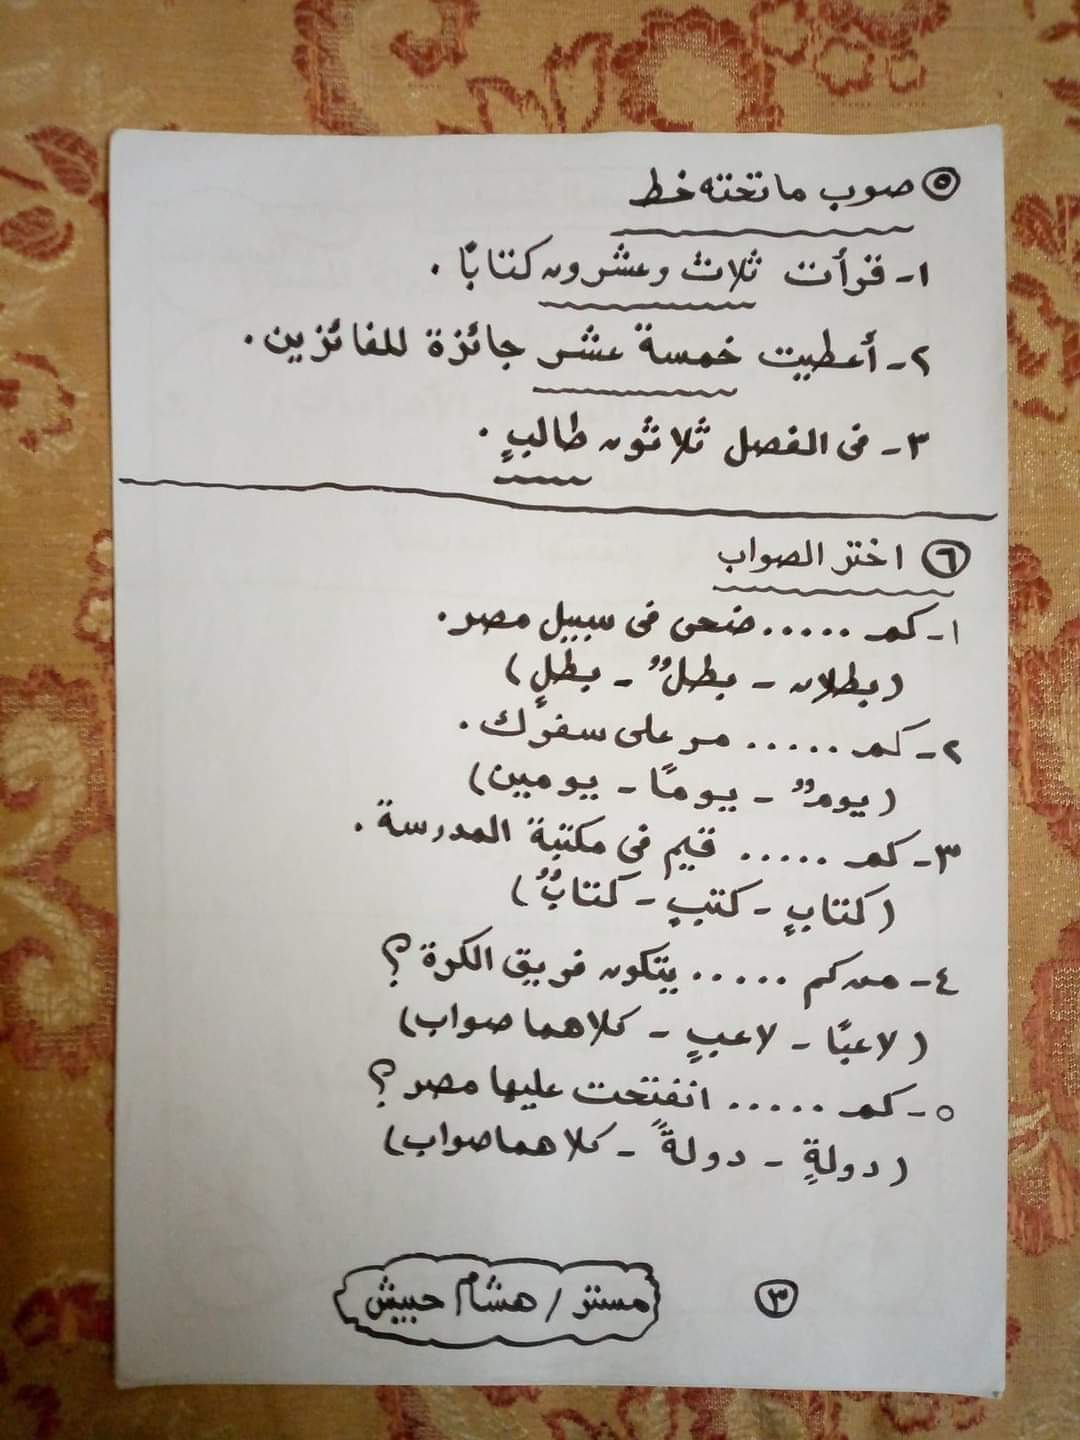 ٥ صوب ما تحته خط
١- قرأت ثلاث وعشرون كتابًا .
٢- أعطيت خمسة عشر جائزة للفائزين .
٣- فى الفصل ثلاثون طالبٍ .
٦ اختر الصواب
١- كم ..... ضحى فى سبيل مصر .
( بطلان - بطلٌ - بطلٍ )
٢- كم ..... مر على سفرك .
( يومٌ - يومًا - يومين )
٣- كم ..... قيم فى مكتبة المدرسة .
( كتابٍ - كتبٍ - كتابٌ )
٤- من كم ..... يتكون فريق الكرة ؟
( لاعبًا - لاعبٍ - كلاهما صواب )
٥- كم ..... انفتحت عليها مصر ؟
( دولةٍ - دولةً - كلاهما صواب )
٣
مستر / هشام حبيش